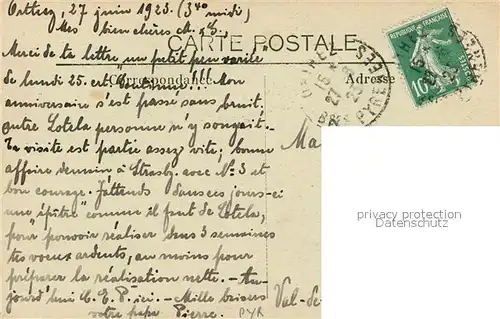 Orthez, 27 juin 1923. (3 40 midi)
Mes bien chères M. & S.
CARTE POSTALE
Merci de ta lettre, un petit peu
de lundi 25. Continue!!! Mon
Correspondance
Adresse
anniversaire s'est passé sans bruit.
outre Lotela personne n'y songait.
Ta visite est partie assez vite; bonne
affaire demain à Strasb. avec N° 3 et
bon courage. J'attends dans ces jours-ci
une "épître comme il faut de Lotela,
pour pouvoir réaliser dans 3 semaines
tes voeux ardents, au moins pour
préparer la réalisation nette. - Au-
jourd'hui ici. - Mille baisers
votre papa Pierre.
Ma
Val-de
PYR
REPUBLIQUE FRANÇAISE
10
POSTES
privacy protection watermark
(not on original image)